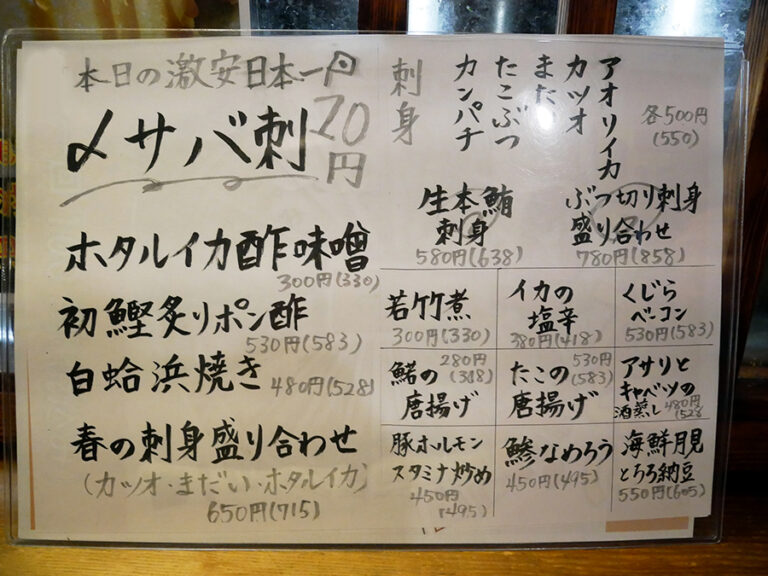 本日の激安日本一円
〆サバ刺
20円
ホタルイカ酢味噌
300円(330)
初鰹炙りポン酢
530円(583)
白蛤浜焼き 480円(528)
春の刺身盛り合わせ
(カツオ・まだい・ホタルイカ)
650円(715)
刺身
アオリイカ
カツオ
まだい
たこぶつ
カンパチ
各500円
(550)
生本鮪
刺身
580円(638)
ぶつ切り刺身
盛り合わせ
780円(858)
若竹煮
300円(330)
イカの
塩辛
380円(418)
くじら
ベーコン
530円(583)
280円
(318)
鰙の
唐揚げ
530円
(583)
たこの
唐揚げ
アサリと
キャベツの
酒蒸し 480円
(528
豚ホルモン
スタミナ炒め
450円
(495)
鯵なめろう
450円(495)
海鮮月見
とろろ納豆
550円(605)